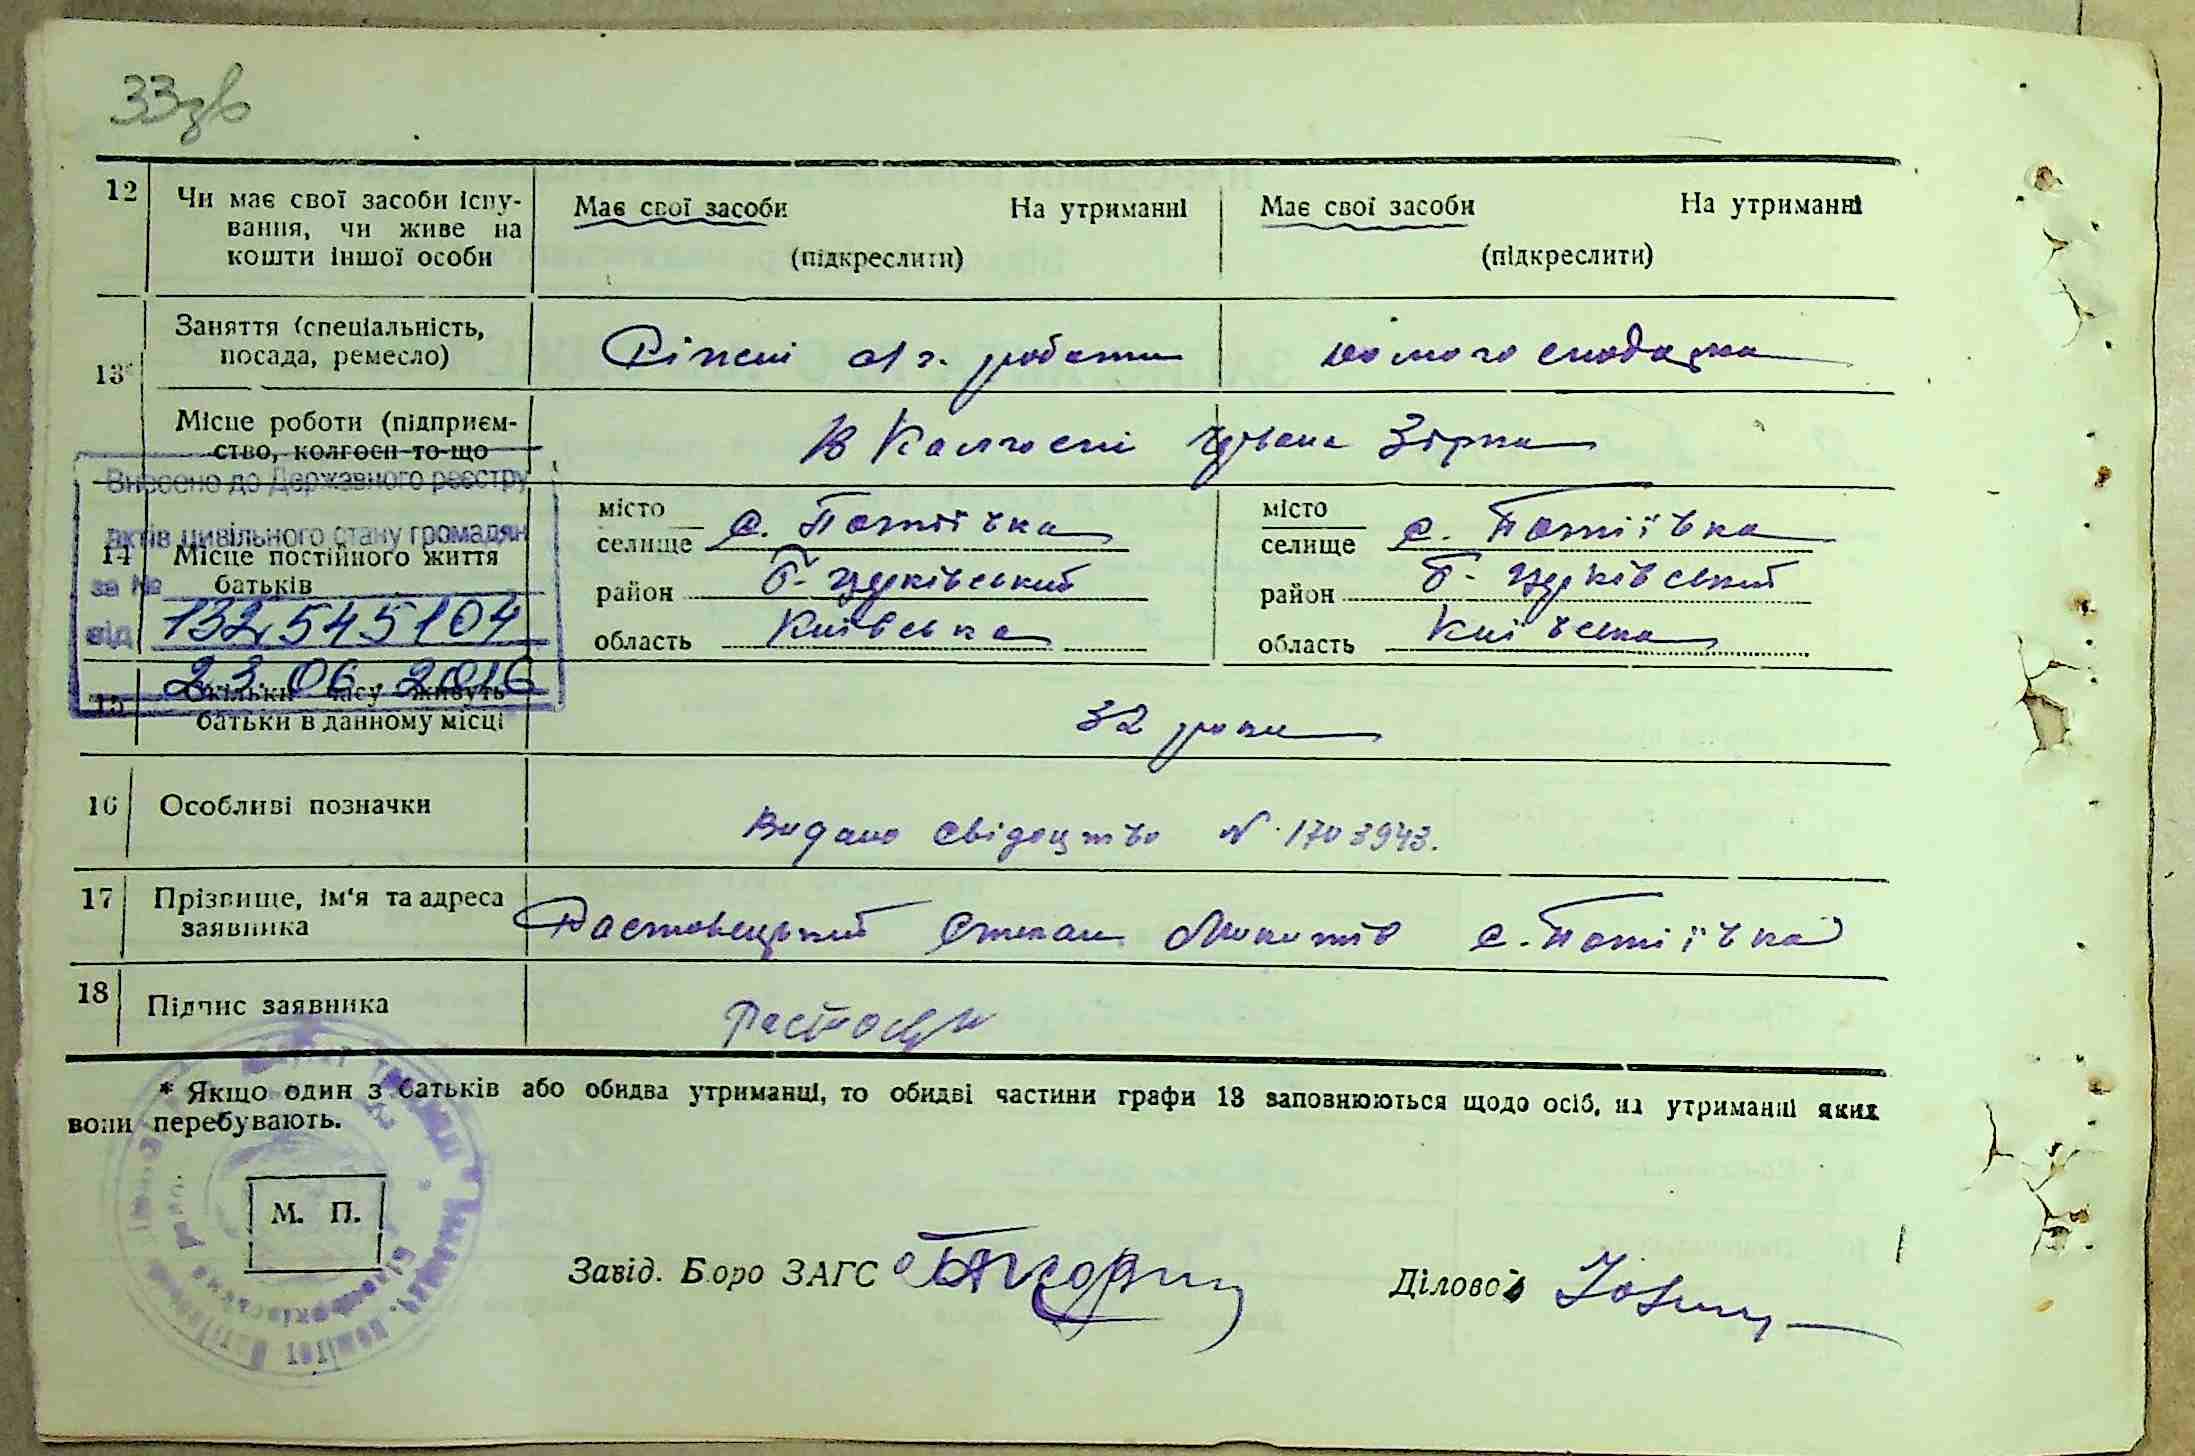 33зв
12 Чи має свої засоби існу-
вання, чи живе на
кошти іншої особи
Має свої засоби На утриманні
(підкреслити)
Має свої засоби На утриманні
(підкреслити)
13* Заняття (спеціальність,
посада, ремесло)
Ріжні с/г. роботи
домогосподарка
Місце роботи (підприєм-
ство, колгосп то-що
В Колгоспі Червона Зірка
Внесено до Державного реєстру
актів цивільного стану громадян
за № 132545104
від 23.06.2016
14 Місце постійного життя
батьків
місто
селище с. Потіївка
район Б-Церківський
область Київська
місто
селище с. Потіївка
район Б-Церківський
область Київська
15 Скільки часу живуть
батьки в данному місці
32 роки
16 Особливі позначки
Видано свідоцтво № 1703943.
17 Прізвище, ім'я та адреса
заявника
Растовецький Степан с. Потіївка
18 Підпис заявника
* Якщо один з батьків або обидва утриманці, то обидві частини графи 13 заповнюються щодо осіб, на утриманні яких
вони перебувають.
М. П.
Завід. Бюро ЗАГС
Діловод